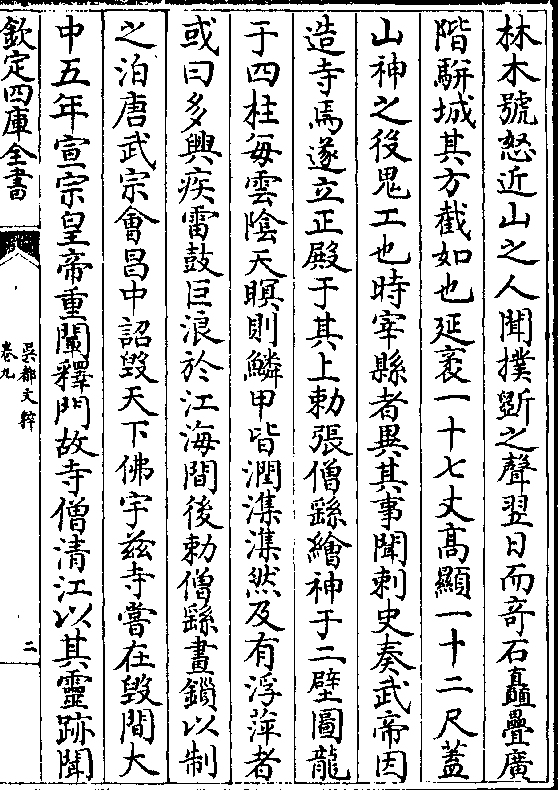 林木號怒近山之人聞撲斵之聲翌日而竒石矗疊廣
階駢城其方截如也延袤一十七丈髙顯一十二尺蓋
山神之後鬼工也時宰縣者異其事聞刺史奏武帝因
造寺焉遂立正殿于其上勅張僧繇繪神于二壁圖龍
于四柱每雲陰天暝則鱗甲皆潤濈濈然及有浮萍者
或曰多興疾雷鼓巨浪於江海間後勅僧繇畫鎖以制
之洎唐武宗會昌中詔毁天下佛宇兹寺嘗在毁間大
中五年宣宗皇帝重闡釋門故寺僧清江以其靈跡聞
欽定四庫全書
吳都文粹
卷九
二